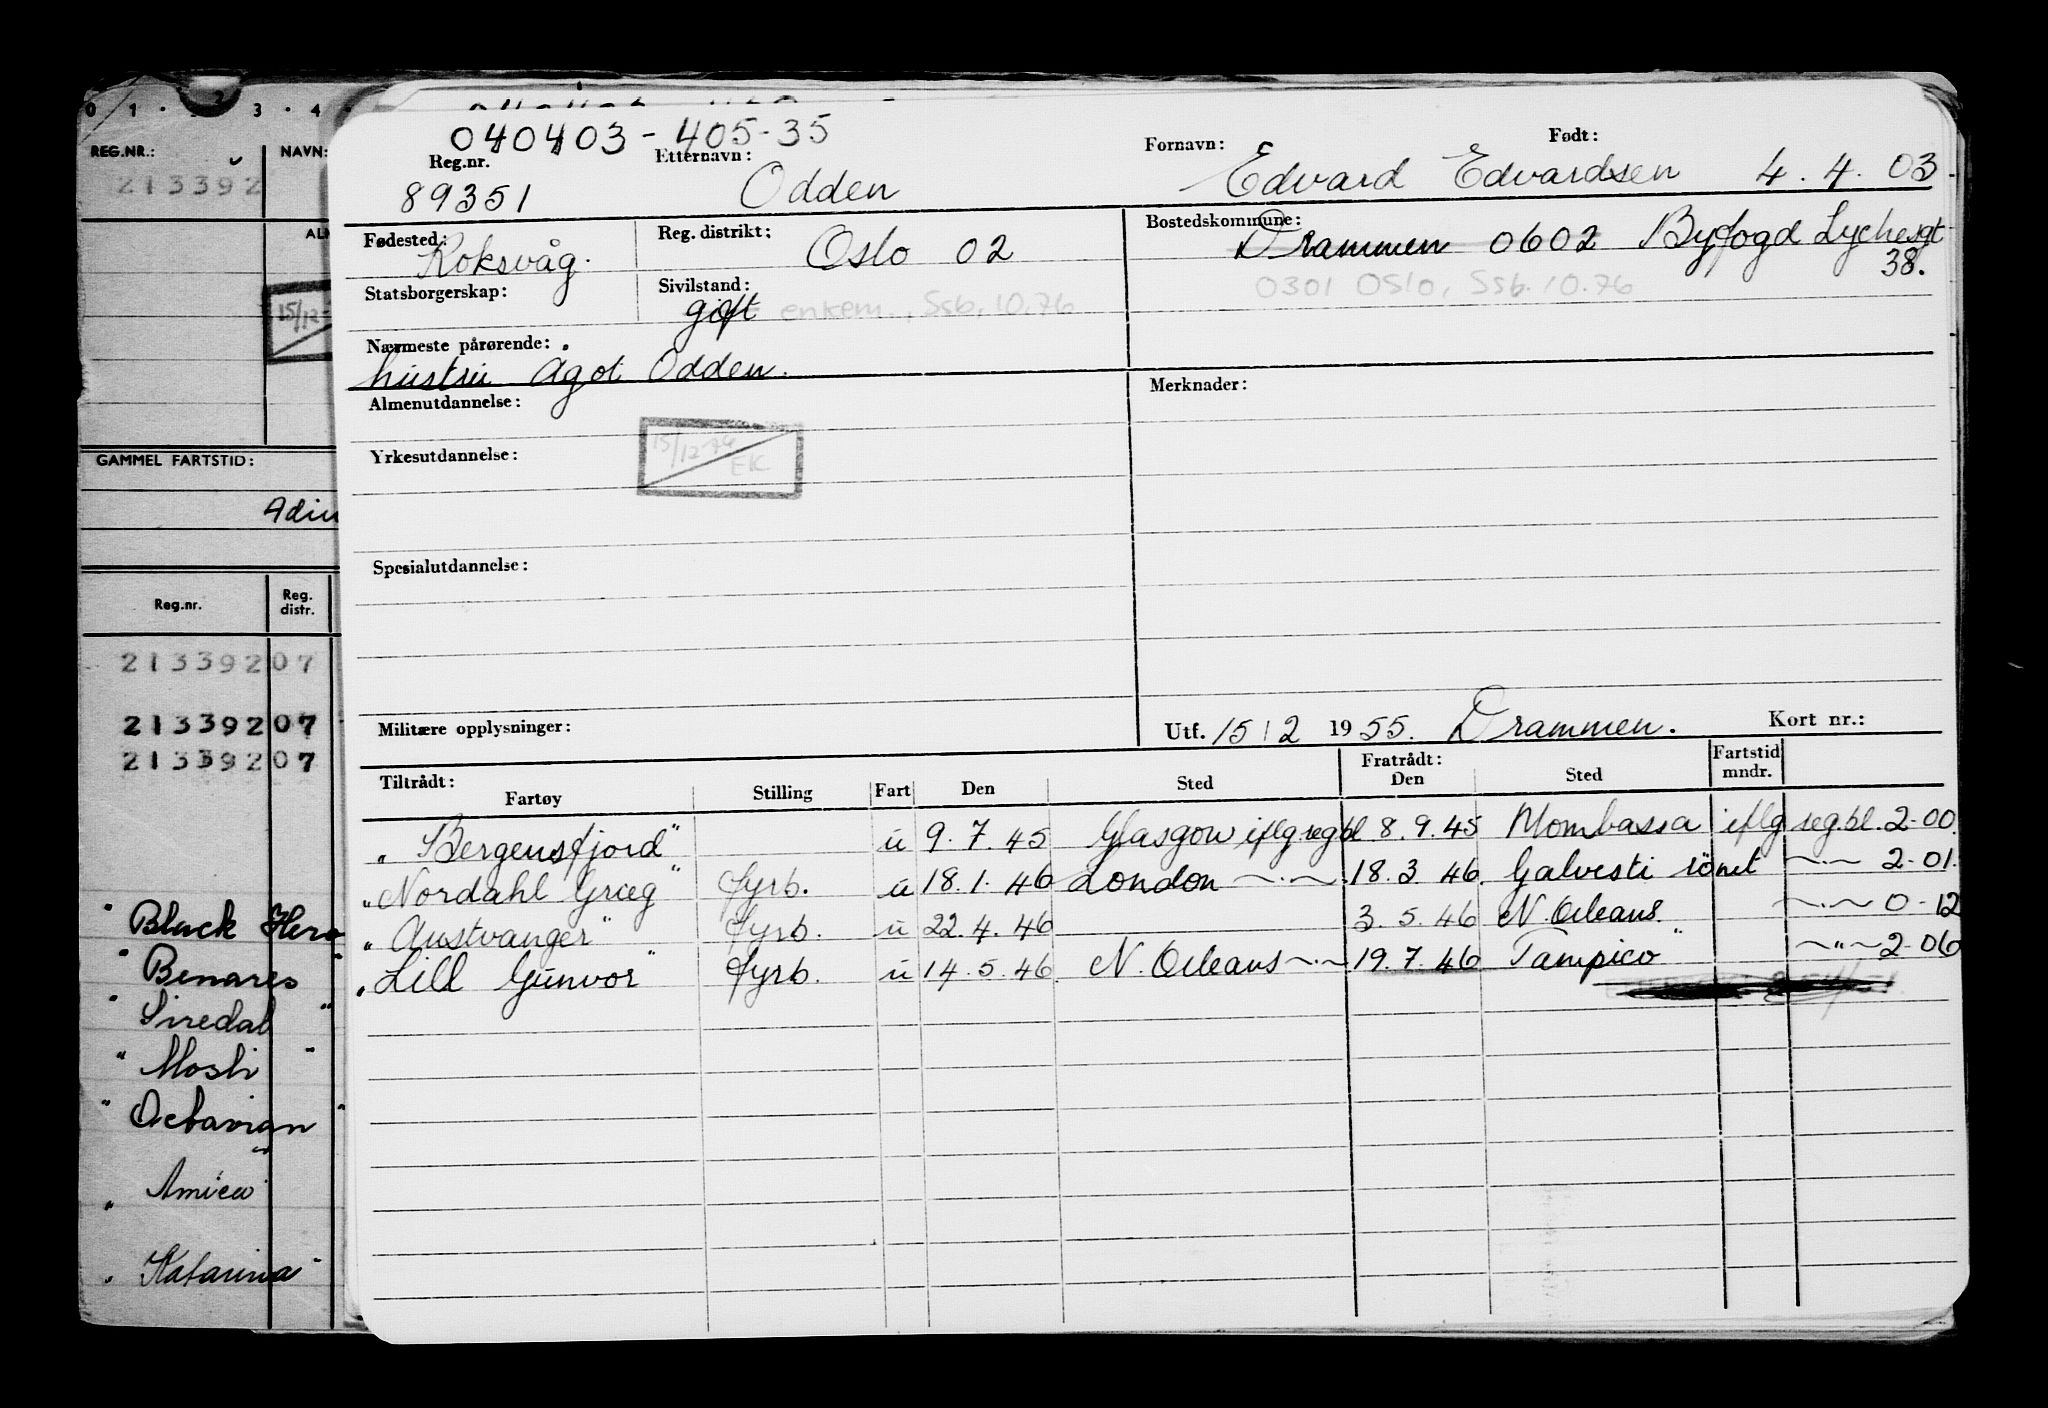 0 1 2 3 4
REG.NR.:
NAVN:
213392
15/12
GAMMEL FARTSTID:
Reg.nr.
Reg. distr.
213392 07
213392 07
213392 07
Black
" Benares "
" Siredal "
" Mosli "
" Octavian "
" Katarina "
040403-405-35
Reg.nr.
Etternavn:
Fornavn:
Født:
89351
Odden
Edvard Edvardsen
4.4.03
Fødested:
Roksvåg.
Reg. distrikt:
Oslo 02
Bostedskommune:
Drammen 0602 Byfogd Lychesgt
38.
Statsborgerskap:
Sivilstand:
gift enkem., Ssb. 10.76
0301 OSLO, Ssb. 10.76
Nærmeste pårørende:
hustru Ågot Odden.
Almenutdannelse:
Merknader:
Yrkesutdannelse:
15/12-76
EK
Spesialutdannelse:
Militære opplysninger:
Utf. 15/2 1955. Drammen.
Kort nr.:
Tiltrådt:
Fratrådt:
Fartstid mndr.
Fartøy
Stilling
Fart
Den
Sted
Den
Sted
"Bergensfjord" u 9.7.45 Glasgow iflg. reg bl 8.9.45 Mombassa iflg reg.bl. 2-00.
"Nordahl Grieg" fyrb. u 18.1.46 London -"- 18.3.46. rømt -"- 2-01.
"Austvanger" fyrb. u 22.4.46 3.5.46 N. Orleans -"- 0-12
"Lill Gunvor" fyrb. u 14.5.46 N. Orleans -"- 19.7.46 Tampico -"- 2-06